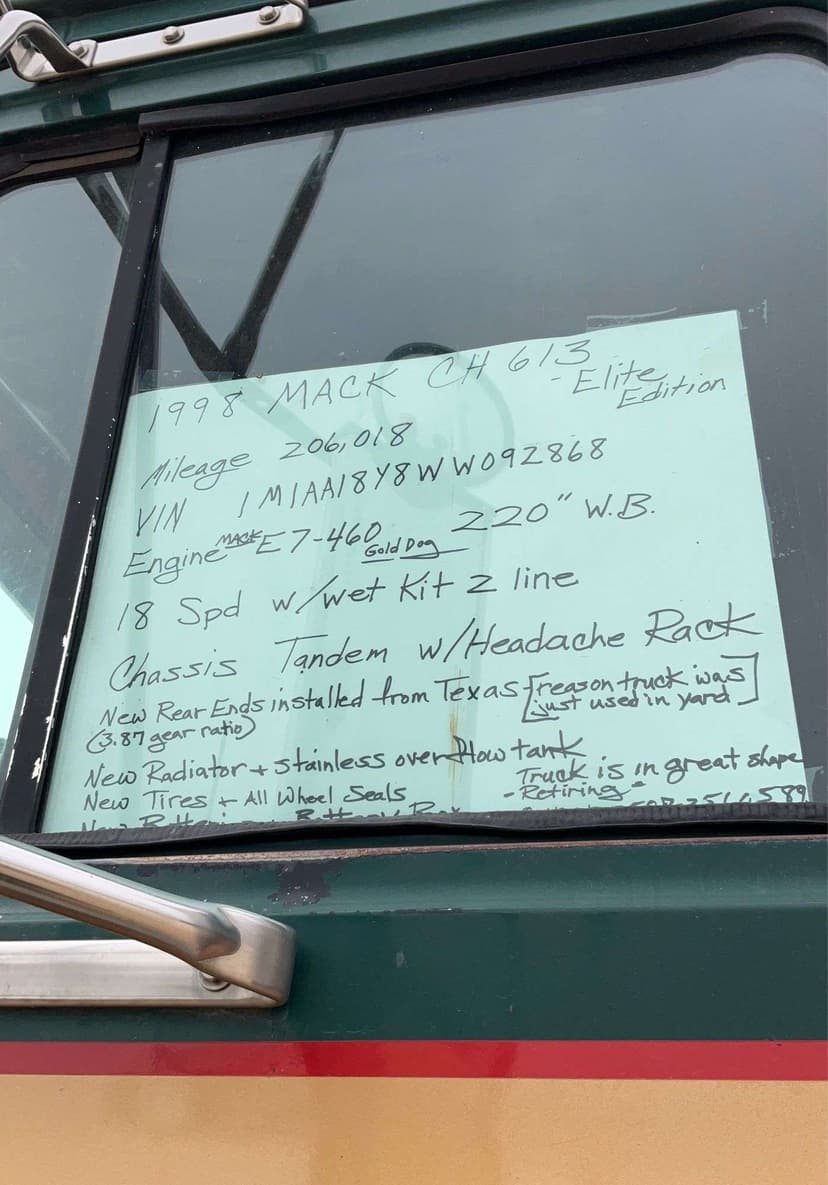 1998 MACK CH 613
- Elite Edition
Mileage 206,018
VIN 1M1AA18Y8WW092868
Engine MACK E7-460 Gold Dog 220" W.B.
18 Spd w/wet Kit 2 line
Chassis Tandem w/Headache Rack
New Rear Ends installed from Texas [reason truck was just used in yard]
(3.87 gear ratio)
New Radiator + stainless overflow tank
Truck is in great shape
New Tires + All Wheel Seals
- Retiring -